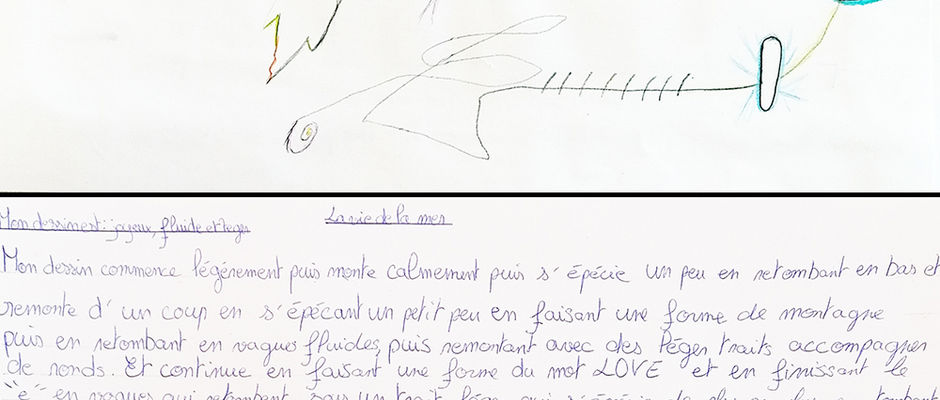 Mon dessin est : joyeux, fluide et leger
La vie de la mer
Mon dessin commence légérement puis monte calmement puis s'épécie un peu en retombant en bas et
remonte d'un coup en s'épécant un petit peu en faisant une forme de montagne
puis en retombant en vagues fluides, puis remontant avec des léger traits accompagner
de ronds. Et continue en faisant une forme du mot LOVE et en finissant le
"e" en vagues qui retombent